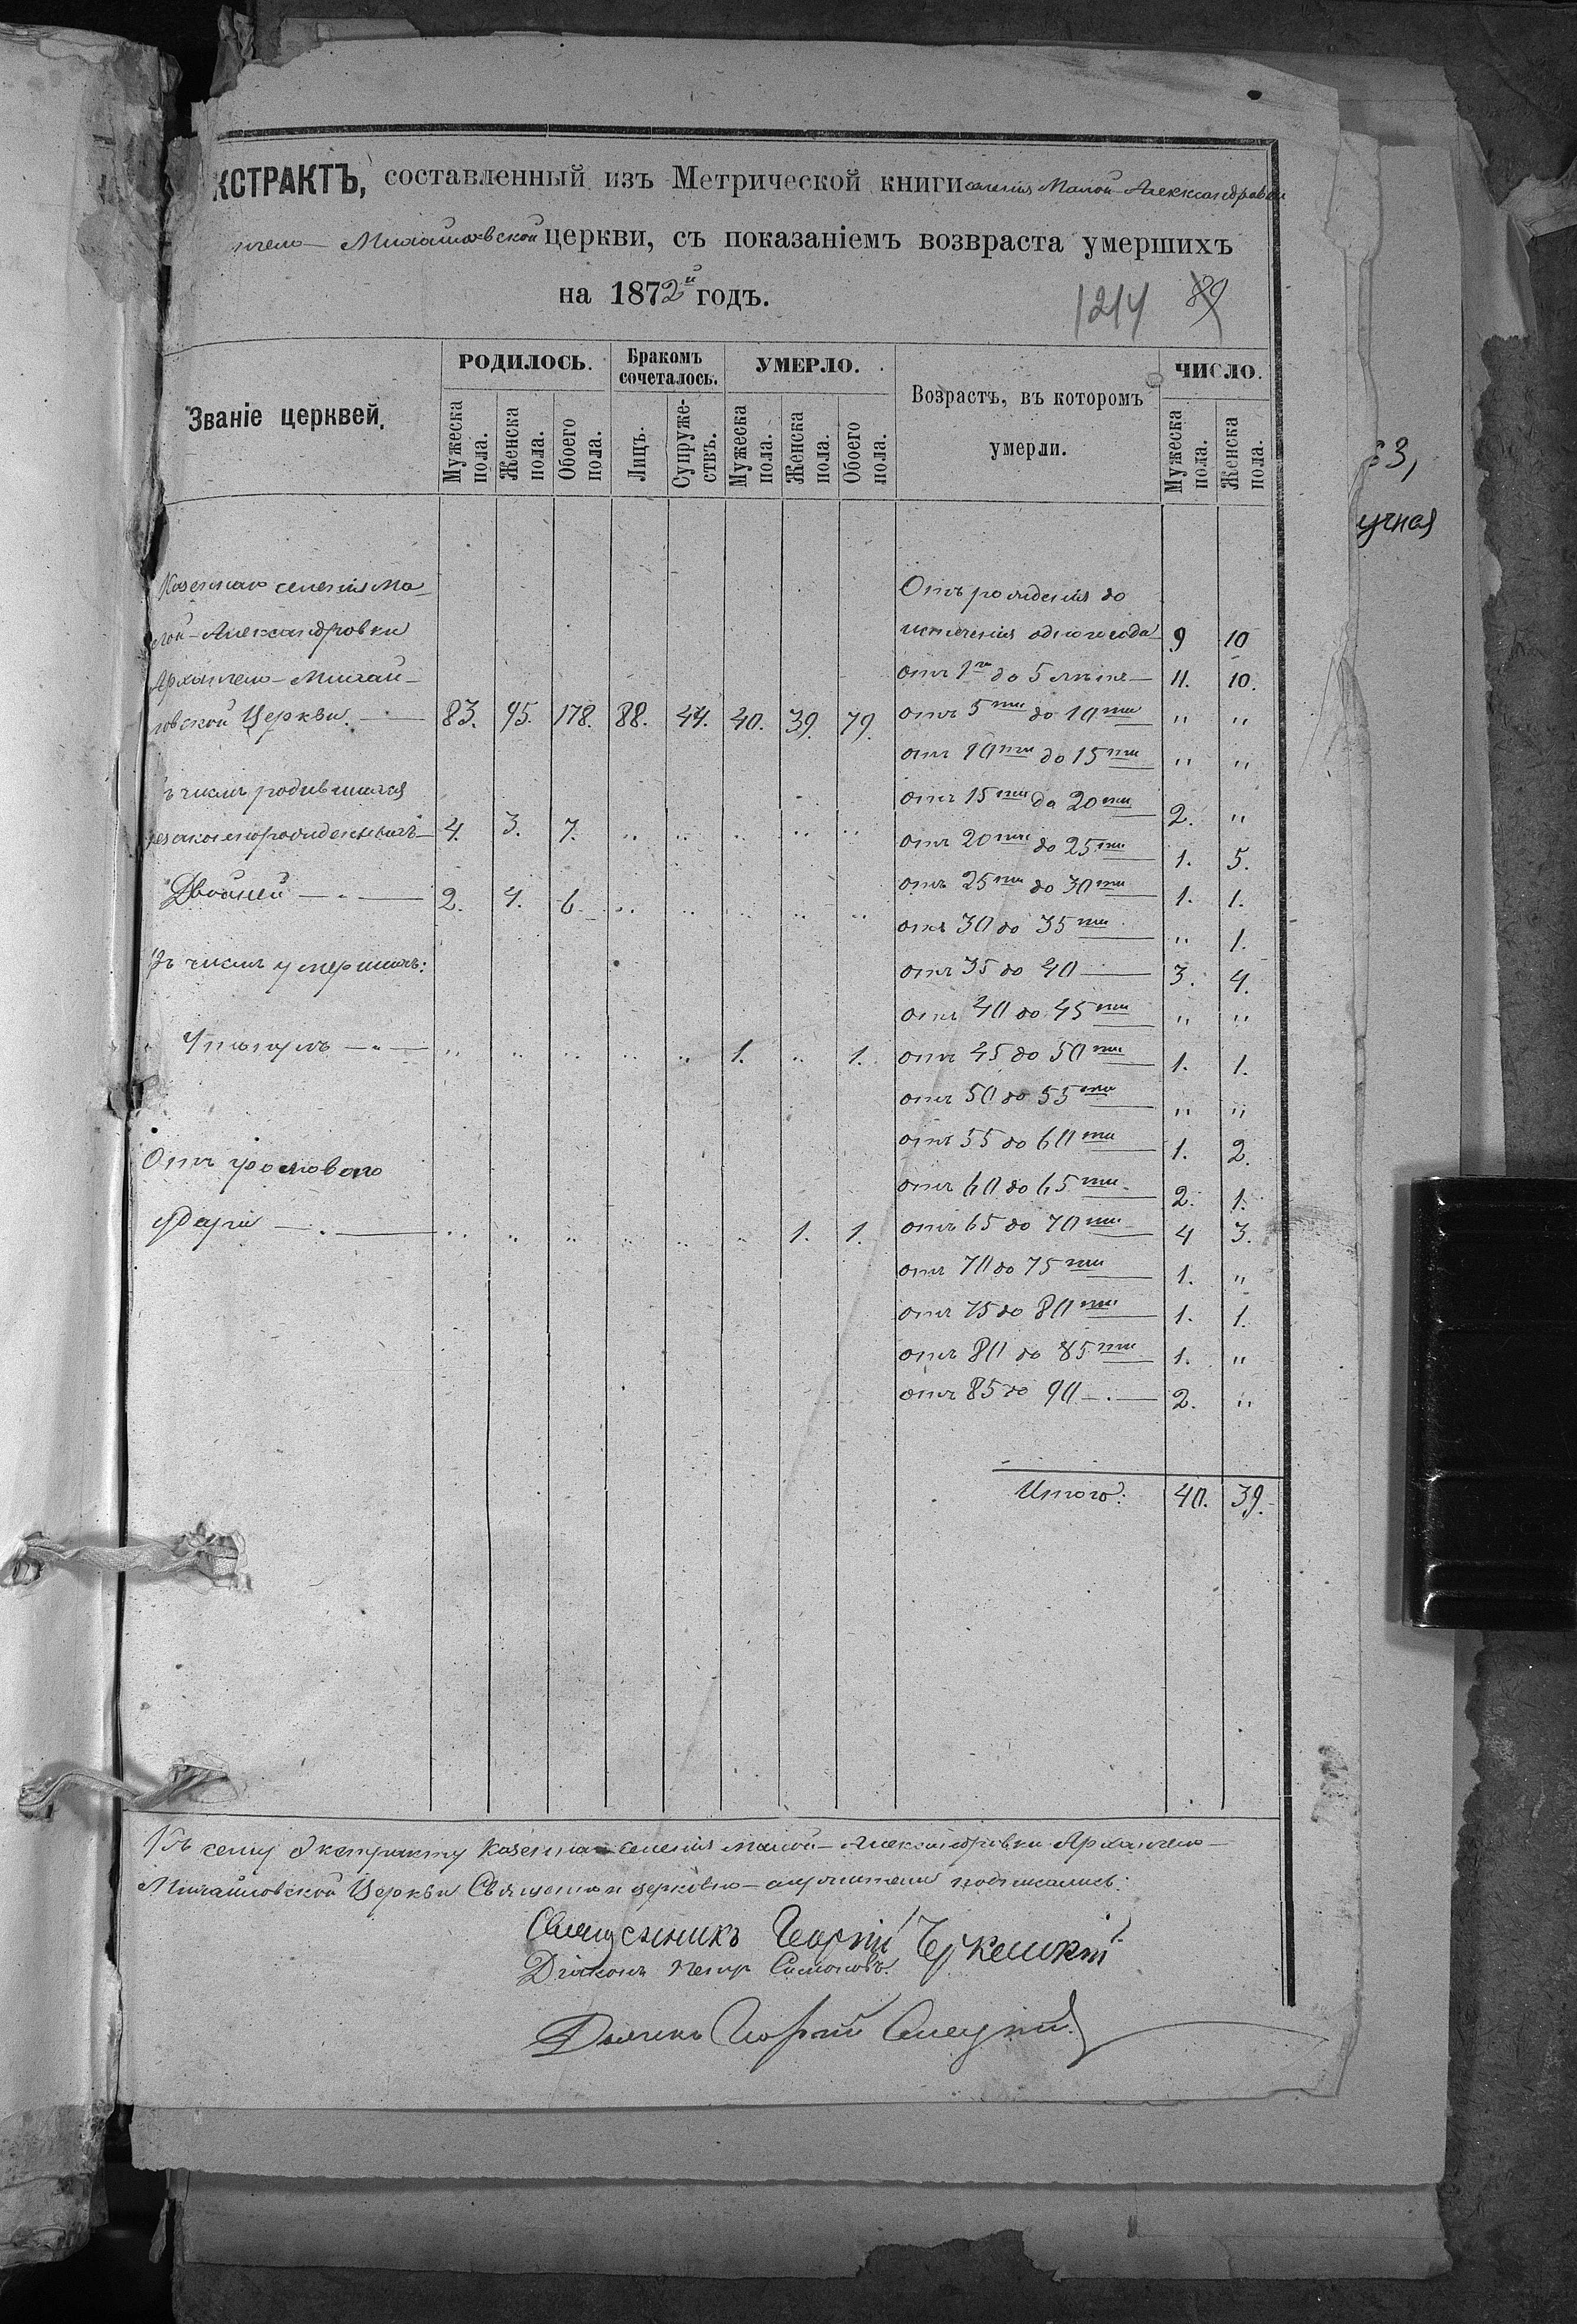 КСТРАКТЪ, составленный изъ Метрической книги селенія Малой Александровки
Михайловской церкви, съ показаніемъ возвраста умершихъ
на 1872й годъ.
1214 89
Званіе церквей.
РОДИЛОСЬ.
Бракомъ сочеталось.
УМЕРЛО.
Возрастъ, въ которомъ умерли.
ЧИСЛО.
Мужеска пола.
Женска пола.
Обоего пола.
Лицъ.
Супружествъ.
Мужеска пола.
Женска пола.
Обоего пола.
Мужеска пола.
Женска пола.
Казеннаго селенія Ма-
лой-Александровки
Архангело-Михай-
ловской Церкви. — 83. 95. 178. 88. 44. 40. 39. 79.
ъ числѣ родившихся
незаконнорожденныхъ — 4. 3. 7. " " " " "
Двойней — 2. 4. 6. " " " " "
Въ числѣ умершихъ:
" " " " " 1. " 1.
Отъ громоваго
удара — " " " " " " 1. 1.
Отъ рожденія до
истеченія одного года 9 10
отъ 1го до 5 лѣтъ — 11. 10.
отъ 5ти до 10ти " "
отъ 10ти до 15ти " "
отъ 15ти до 20ти 2. "
отъ 20ти до 25ти 1. 5.
отъ 25ти до 30ти 1. 1.
отъ 30 до 35ти " 1.
отъ 35 до 40 — 3. 4.
отъ 40 до 45ти " "
отъ 45 до 50ти 1. 1.
отъ 50 до 55ти " "
отъ 55 до 60ти 1. 2.
отъ 60 до 65ти 2. 1.
отъ 65 до 70ти 4 3.
отъ 70 до 75ти 1. "
отъ 75 до 80ти 1. 1.
отъ 80 до 85ти 1. "
отъ 85 до 90 — 2. "
Итого: 40. 39.
Къ сему Экстракту казеннаго селенія Малой-Александровки Архангело-
Михайловской Церкви Священно и церковно-служители подписались:
Священникъ Георгій
Діаконъ Петръ Симоновъ.
Дьячекъ Георгій
63,
учная